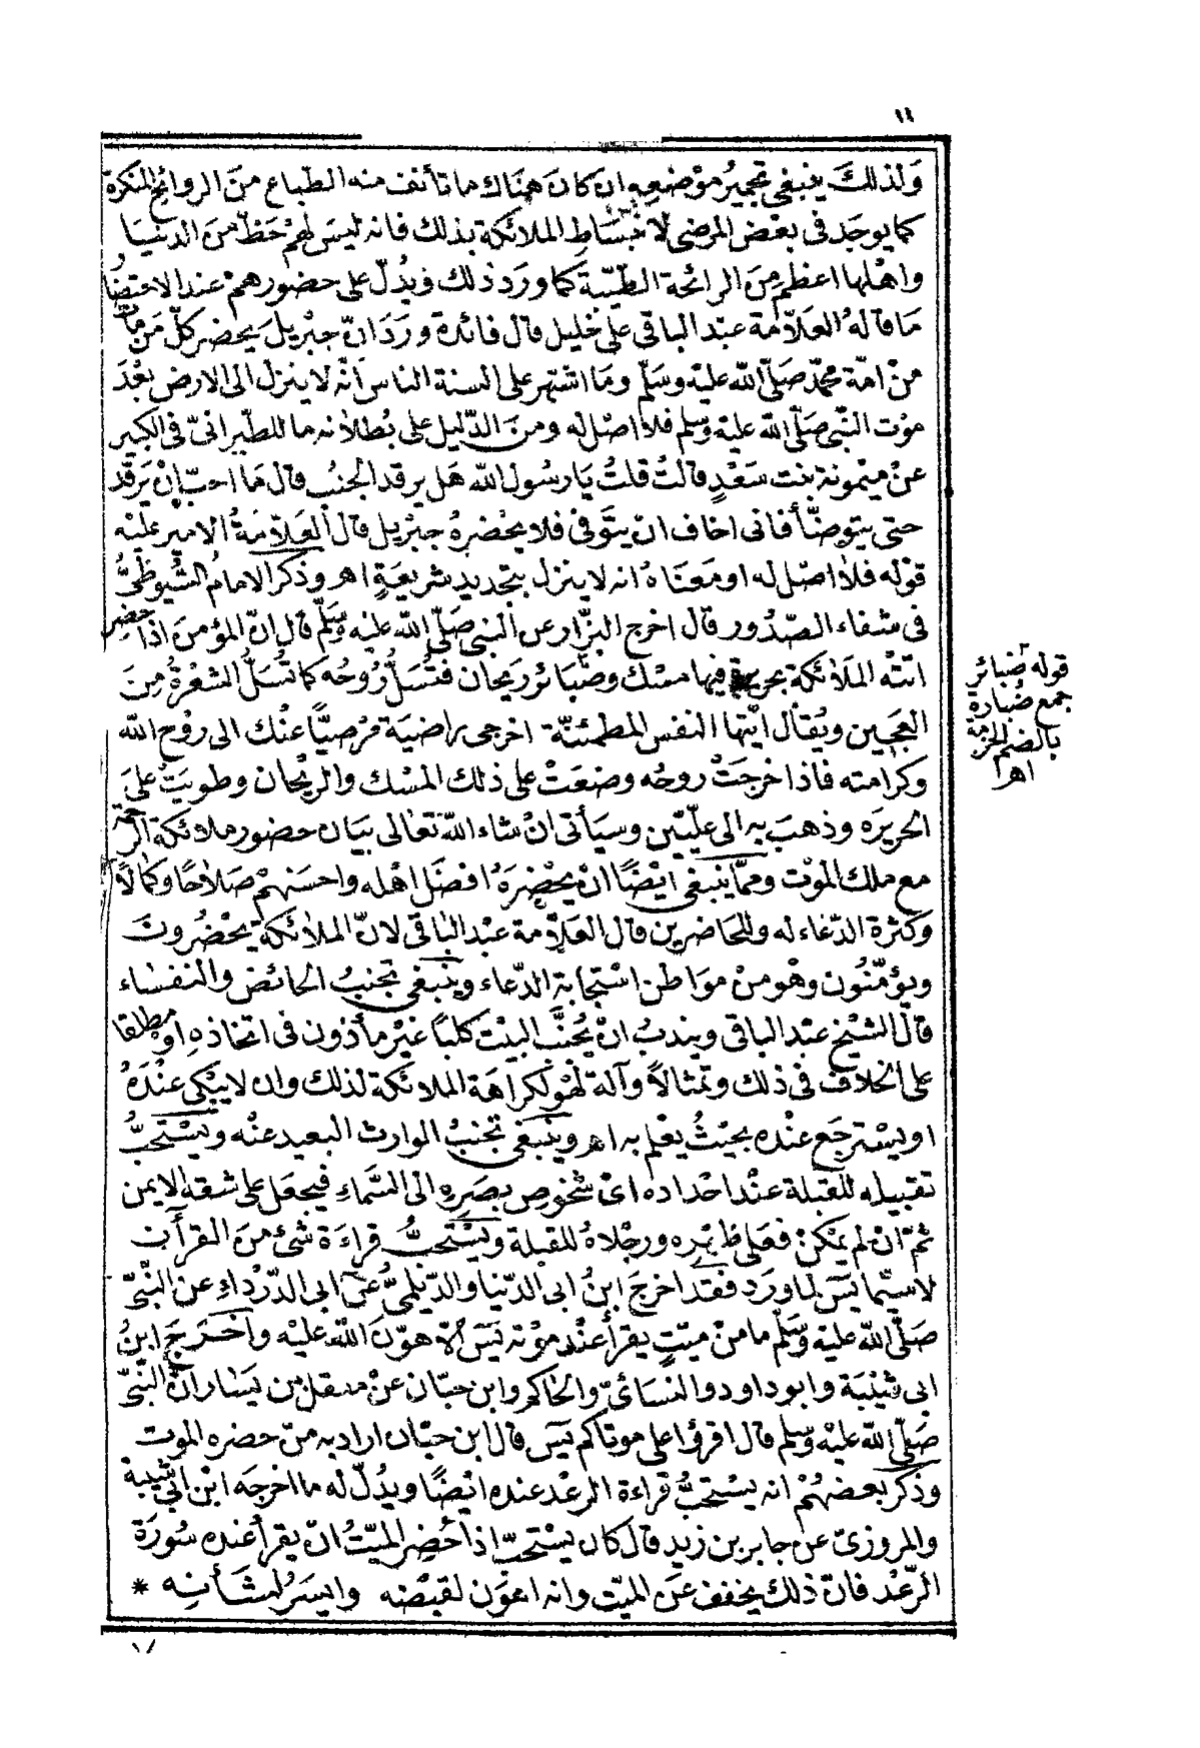 ١١
وَلذلكَ ينبغى تجميرُ مَوْضعِهِ ان كانَ هناك ما تأنف منه الطباع مِنَ الروائح المنكرة
كما يوجَد فى بعْض المرضى لانبساطِ الملائكة بذلك فانه ليسَ لهمْ حَظّ مِنَ الدنيَا
واهْلها اعظم مِنَ الرائحة الطيّبة كما ورَد ذلك ويدُلّ على حضورهمْ عند الاحتضار
مَا قالهُ العَلاّمة عبْد الباقى على خليل قال فائدة ورَدَ انّ جبْريلَ يحضر كلّ مَن مات
منْ امّة محمّد صَلّى الله عليْه وسَلّم ومَا اشتهر على السنة الناس انّه لا ينزل الى الارض بعْدَ
موْت النّبى صَلّى الله عليه وسلم فلا اصْل له ومنَ الدّليل على بُطلانه ما للطّبرانىّ فى الكبير
عنْ ميْمونة بنت سَعْدٍ قالتْ قلتُ يَا رسُول الله هَل يرقد الجنُب قال مَا احبّ انْ يَرْقد
حتى يتوضّأ فانى اخاف انْ يتَوفى فلا يحْضرهُ جبْريل قال العَلاّمَةُ الامير عليْه
قوْله فلا اصْل له اومَعنَاهُ انه لا ينزل بتجديد شريعَةٍ اهـ وذكر الامامُ السُّيوطىُّ
فى شفاء الصّدُور قال اخرج البزّار عن النبى صَلّى الله عليه وسَلّم قال انّ المؤمنَ اذا حضر
اتتْه المَلَائكة بحريرة فيها مسْك وضَبَائر رَيحان فتُسَلُّ رُوحُه كما تُسَلُّ الشعْرةُ مِنَ
العجين ويُقال ايّتها النفس المطمئنّة اخرجى راضيَة مَرْضيًّا عنْك الى رَوْح الله
وكرامته فاذا خرجَتْ روحُه وضعَتْ على ذلك المسْك والريْحان وطويَتْ عليْه
الحريرَه وذهبَ به الى علّيّين وسيَأتى انْ شاء الله تعَالى بيَان حضور ملائكة الرّحمة
مع ملك الموْت وممّا ينبغى ايْضًا انْ يحْضرَهُ افضَل اهْله واحسَنهمْ صَلاحًا وكمالاً
وكثرة الدّعاء له وللحَاضرين قال العَلاّمة عبْد الباقى لانّ الملائكة يحْضُرونَ
ويؤمّنُون وهْو منْ موَاطن اسْتجابة الدّعاء وينْبغى تجنبُ الحائض والنفسَاء
قال الشيْخ عبْد الباقى ويندبُ انْ يُجنَّبَ البيْت كلبًا غيْر مأذون فى اتخاذهِ اومطلقا
على الخلاف فى ذلك وتمثالاً وآلة لهْو لكراهَة الملائكة لذلك وان لا يبْكى عنْدَهُ
اويسْترجَع عنْده بحيْثُ يعْلم به اهـ وينْبغى تجنبُ الوارث البعيد عنْه ويسْتحبُّ
تقبيله للقبلة عنْد احْداده اىْ شخوص بصَرِهِ الى السّماءِ فيجعَل على شقه الايمن
ثمّ انْ لم يمْكنْ فعَلى ظهْره ورجْلاهُ للقبلة ويسْتحبُّ قراءَة شئ منَ القرآن
لاسيّما يسَ لما ورَد فقد اخرجَ ابنُ ابى الدّنيا والدّيلمىُّ عن ابى الدّرْداءِ عن النّبىّ
صَلّى الله عليه وسَلّم ما منْ ميّتٍ يقرأ عنْد موْته يسَ الاّ هوّنَ الله عليْه واخْرَجَ ابنُ
ابى شيْبَة وابو داود والنّسَائىّ والحَاكم وابن حبّان عنْ معقل بن يسَار انّ النّبىّ
صَلّى الله عليْه وسَلّم قال اقرؤا على موتاكم يسَ قال ابن حبّان اراد به منْ حضره الموت
وذكر بعضهُمْ انه يسْتحبُّ قراءة الرعْد عنده ايْضًا ويدُلّ له ما اخرجَه ابْن ابى شيْبة
والمروزىّ عنْ جابر بن زيد قال كان يسْتحبّ اذا حُضِر الميّتُ انْ يقرأ عنده سُورَة
الرّعْد فانّ ذلك يخفف عنَ الميّت وانه اهْوَن لقبْضه وايسَرُ لشَأنِه *
قوله ضبائر
جمع ضُبارة
بالضم الحزمة
اهـ